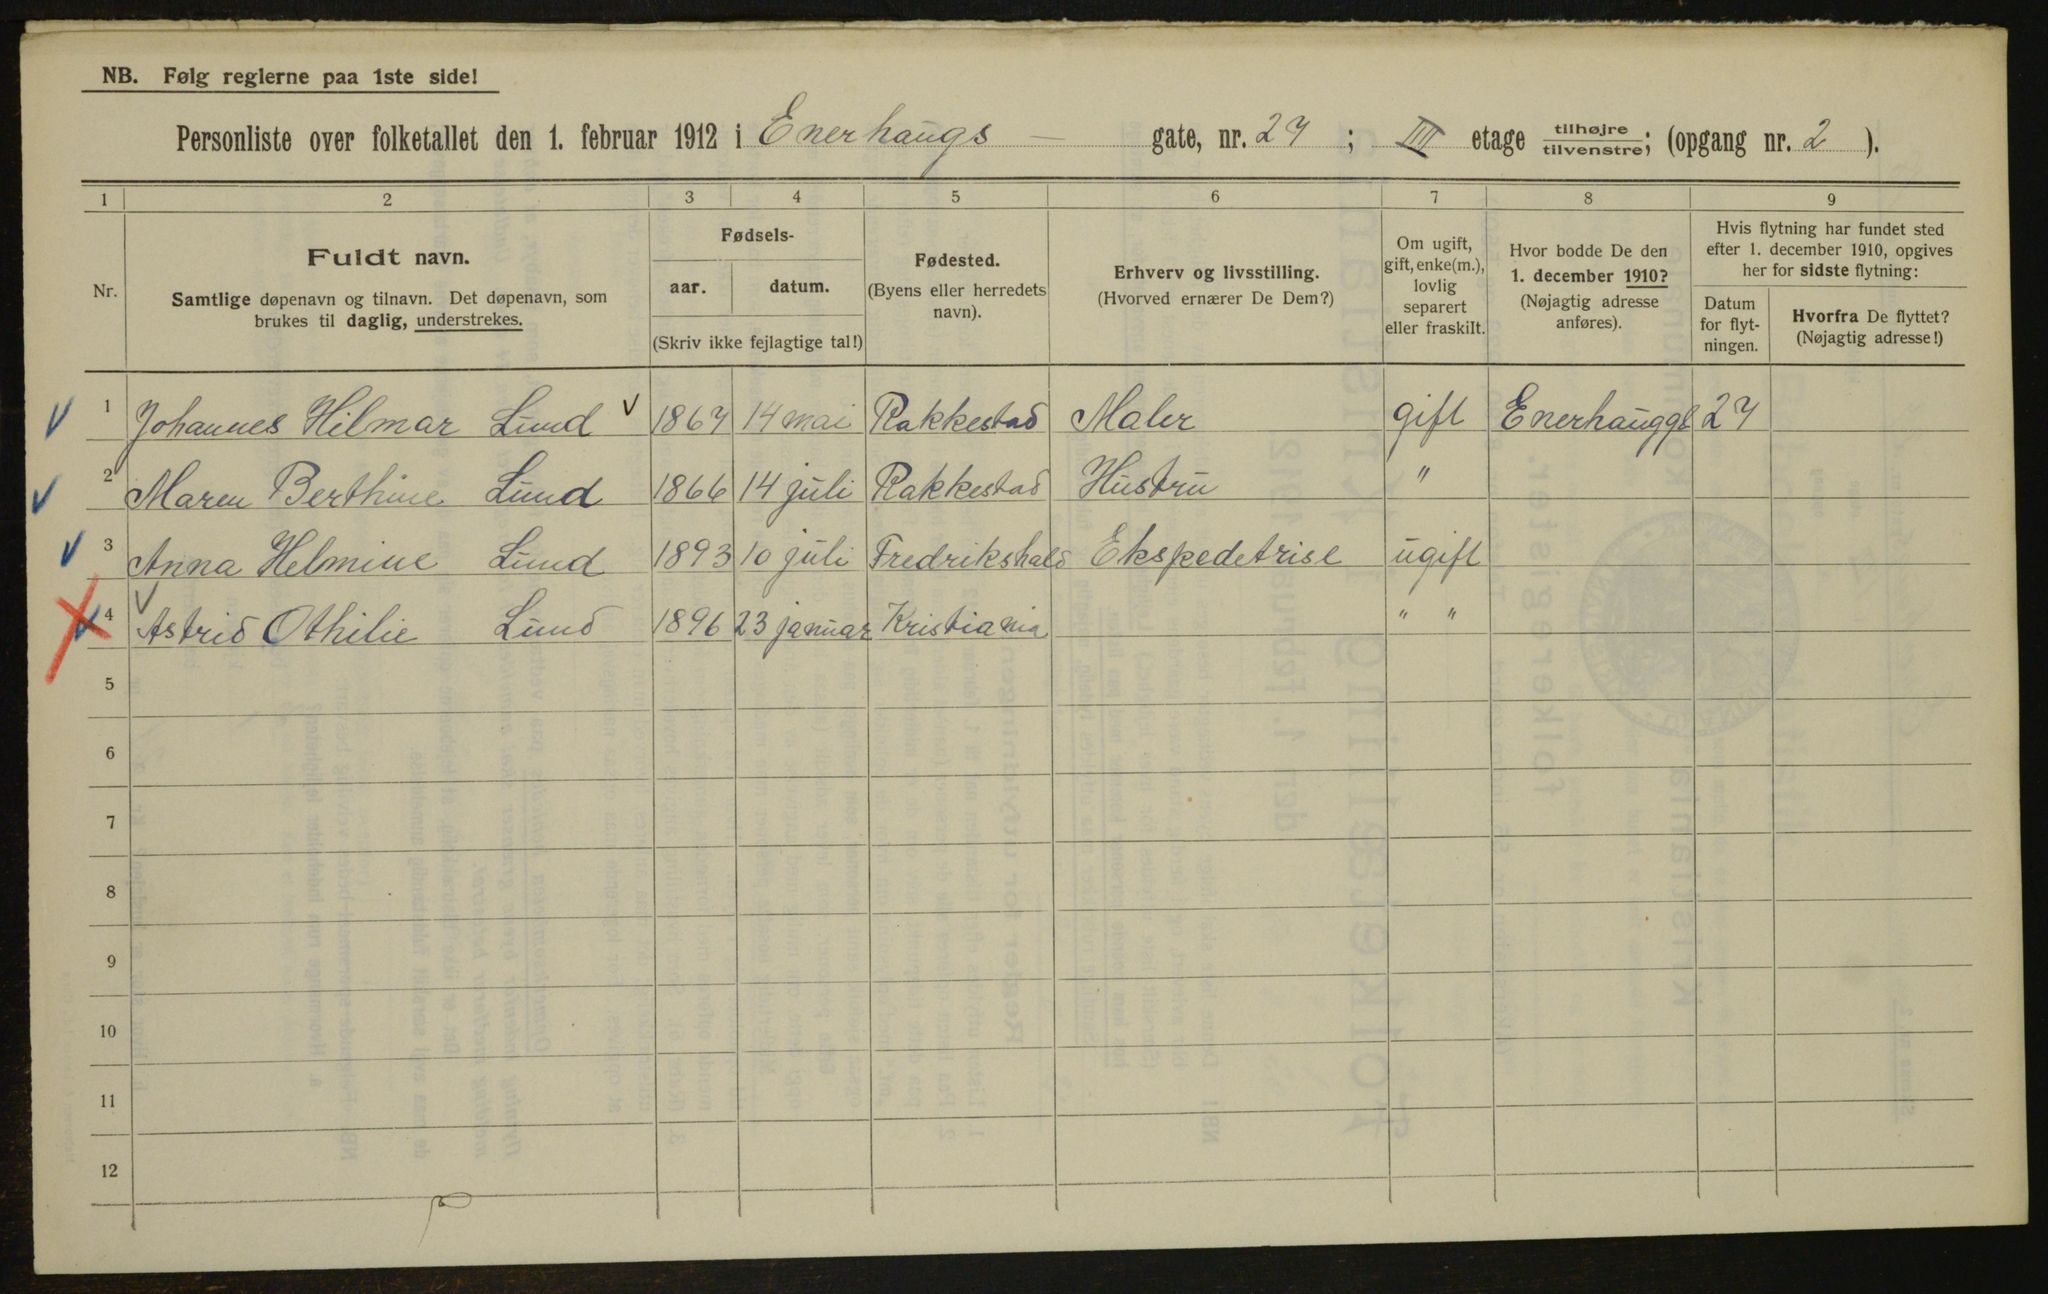 NB. Følg reglerne paa 1ste side!
Personliste over folketallet den 1. februar 1912 i Enerhaugs — gate, nr. 27 ; III etage tilhøjre tilvenstre; (opgang nr. 2 ).
1 2 3 4 5 6 7 8 9
Nr.
Fuldt navn.
Samtlige døpenavn og tilnavn. Det døpenavn, som
brukes til daglig, understrekes.
Fødsels-
aar. datum.
(Skriv ikke fejlagtige tal!)
Fødested.
(Byens eller herredets
navn).
Erhverv og livsstilling.
(Hvorved ernærer De Dem?)
Om ugift,
gift, enke(m.),
lovlig
separert
eller fraskilt.
Hvor bodde De den
1. december 1910?
(Nøjagtig adresse
anføres).
Hvis flytning har fundet sted
efter 1. december 1910, opgives
her for sidste flytning:
Datum
for flyt-
ningen.
Hvorfra De flyttet?
(Nøjagtig adresse!)
1 Johannes Hilmar Lund 1867 14 mai Rakkestad Maler gift Enerhauggt 27
2 Maren Berthine Lund 1866 14 juli Rakkestad Hustru "
3 Anna Helmine Lund 1893 10 juli Fredrikshald Ekspedetrise ugift
4 Astrid Othilie Lund 1896 23 januar Kristiania " "
5
6
7
8
9
10
11
12